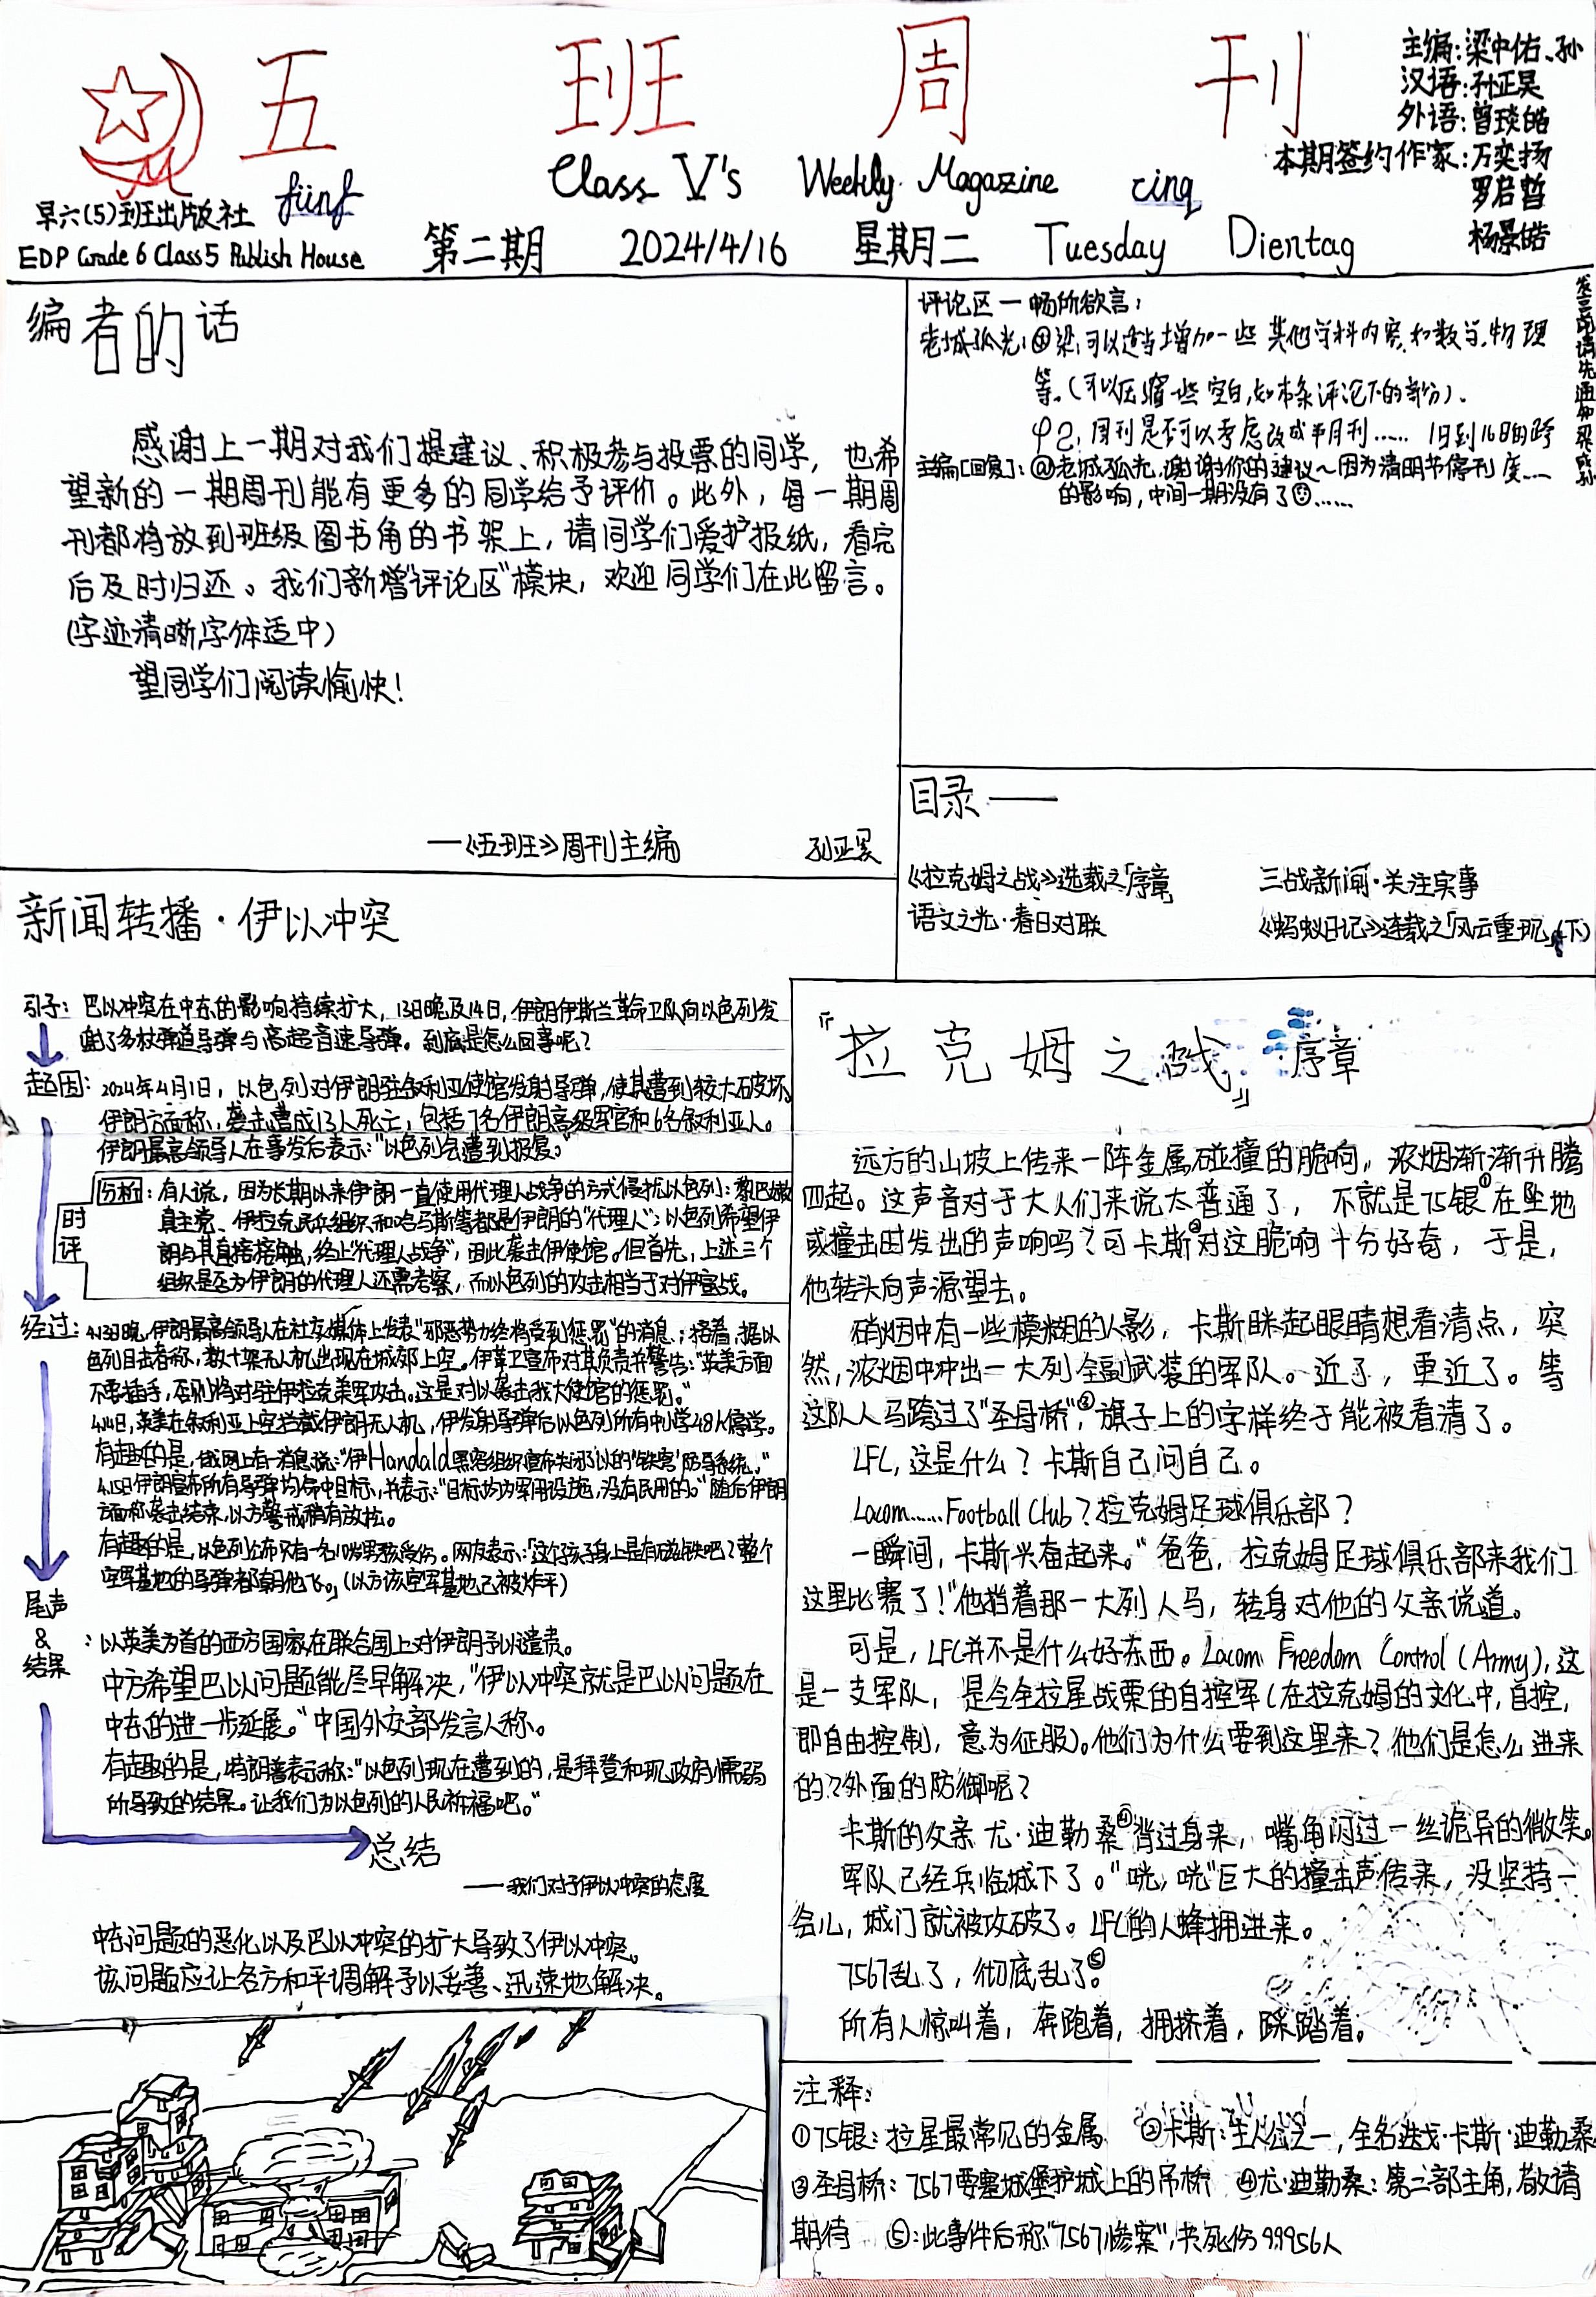 五班周刊
fünf
Class V's Weekly Magazine
cinq
早六(5)班出版社
EDP Grade 6 Class5 Publish House
第二期 2024/4/16 星期二 Tuesday Dientag
主编:梁中佑、孙
汉语:孙正昊
外语:曾琰皓
本期签约作家:万奕扬
罗启哲
杨景皓
编者的话
感谢上一期对我们提建议、积极参与投票的同学，也希
望新的一期周刊能有更多的同学给予评价。此外，每一期周
刊都将放到班级图书角的书架上，请同学们爱护报纸，看完
后及时归还。我们新增"评论区"模块，欢迎同学们在此留言。
(字迹清晰,字体适中)
望同学们阅读愉快!
—《五班》周刊主编 孙正昊
评论区—畅所欲言:
老城孤光:@梁,可以适当增加一些其他学科内容,和数学,物理
等。(可以压缩一些空白,如本条评论下的部分)。
P2:周刊是否可以考虑改成半月刊…… 1日到16日的跨
主编[回复]:@老城孤光,谢谢你的建议~因为清明节停刊 度……
的影响,中间一期没有了……
目录——
《拉克姆之战》选载之「序章」 三战新闻·关注实事
语文之光·春日对联 《蚂蚁日记》连载之「风云重现」(下)
新闻转播·伊以冲突
引子: 巴以冲突在中东的影响持续扩大，13日晚及14日，伊朗伊斯兰革命卫队向以色列发
射了多枚弹道导弹与高超音速导弹。到底是怎么回事呢?
起因: 2024年4月1日，以色列对伊朗驻叙利亚使馆发射导弹，使其遭到较大破坏。
伊朗方面称，袭击造成13人死亡，包括7名伊朗高级军官和6名叙利亚人。
伊朗最高领导人在事发后表示:"以色列会遭到报复。"
时评
分析: 有人说，因为长期以来伊朗一直使用代理人战争的方式侵扰以色列:黎巴嫩
真主党、伊拉克民兵组织和哈马斯等都是伊朗的"代理人";以色列希望伊
朗与其直接接触，终止"代理人战争"，因此袭击伊使馆。但首先，上述三个
组织是否为伊朗的代理人还需考察，而以色列的攻击相当于对伊宣战。
经过: 4.13日晚,伊朗最高领导人在社交媒体上发表"邪恶势力终将受到惩罚"的消息;接着,据以
色列目击者称,数十架无人机出现在城郊上空。伊革卫宣布对其负责并警告:"英美方面
不要插手,否则将对驻伊拉克美军攻击。这是对以袭击我大使馆的惩罚。"
4.14日,英美在叙利亚上空拦截伊朗无人机,伊发射导弹后以色列所有中小学48h停学。
有趣的是,俄网上有一消息说:"伊Handald黑客组织宣布关闭了以的'铁穹'防导系统。"
4.15日伊朗宣布所有导弹均命中目标,并表示:"目标均为军用设施,没有民用的。"随后伊朗
方面称袭击结束,以方警戒稍有放松。
有趣的是,以色列公布只有一名10岁男孩受伤。网友表示:「这个孩子身上是有磁铁吧?整个
空军基地的导弹都朝他飞。」(以方该空军基地已被炸平)
尾声
&
结果
:以英美为首的西方国家在联合国上对伊朗予以谴责。
中方希望巴以问题能尽早解决,"伊以冲突就是巴以问题在
中东的进一步延展。"中国外交部发言人称。
有趣的是,特朗普表示称:"以色列现在遭到的,是拜登和现政府懦弱
所导致的结果。让我们为以色列的人民祈福吧。"
总结
——我们对于伊以冲突的态度
中东问题的恶化以及巴以冲突的扩大导致了伊以冲突。
该问题应让各方和平调解予以妥善、迅速地解决。
『拉克姆之战』序章
远方的山坡上传来一阵金属碰撞的脆响，浓烟渐渐升腾
四起。这声音对于大人们来说太普通了，不就是75银①在坠地
或撞击时发出的声响吗?可卡斯②对这脆响十分好奇，于是，
他转头向声源望去。
硝烟中有一些模糊的人影，卡斯眯起眼睛想看清点，突
然,浓烟中冲出一大列全副武装的军队。近了，更近了。等
这队人马跨过了"圣母桥"③,旗子上的字样终于能被看清了。
LFC,这是什么?卡斯自己问自己。
Lacom……Football Club?拉克姆足球俱乐部?
一瞬间，卡斯兴奋起来。"爸爸，拉克姆足球俱乐部来我们
这里比赛了!"他指着那一大列人马，转身对他的父亲说道。
可是，LFC并不是什么好东西。Lacom Freedom Control(Army),这
是一支军队，是令全拉星战栗的自控军(在拉克姆的文化中,自控,
即自由控制，意为征服)。他们为什么要到这里来?他们是怎么进来
的?外面的防御呢?
卡斯的父亲尤·迪勒桑④背过身来，嘴角闪过一丝诡异的微笑。
军队已经兵临城下了。"咣,咣"巨大的撞击声传来，没坚持一
会儿,城门就被攻破了。LFC的人蜂拥进来。
7567乱了，彻底乱了。⑤
所有人惊叫着，奔跑着，拥挤着，踩踏着。
注释:
①75银:拉星最常见的金属 ②卡斯:主人公之一,全名迭戈·卡斯·迪勒桑
③圣母桥:7567要塞城堡护城上的吊桥 ④尤·迪勒桑:第二部主角,敬请
期待 ⑤:此事件后称"7567惨案",共死伤99956人